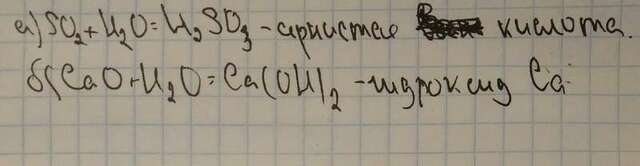 а) SO₂+H₂O=H₂SO₃-сернистая кислота.
б) CaO+H₂O=Ca(OH)₂-гидроксид Ca